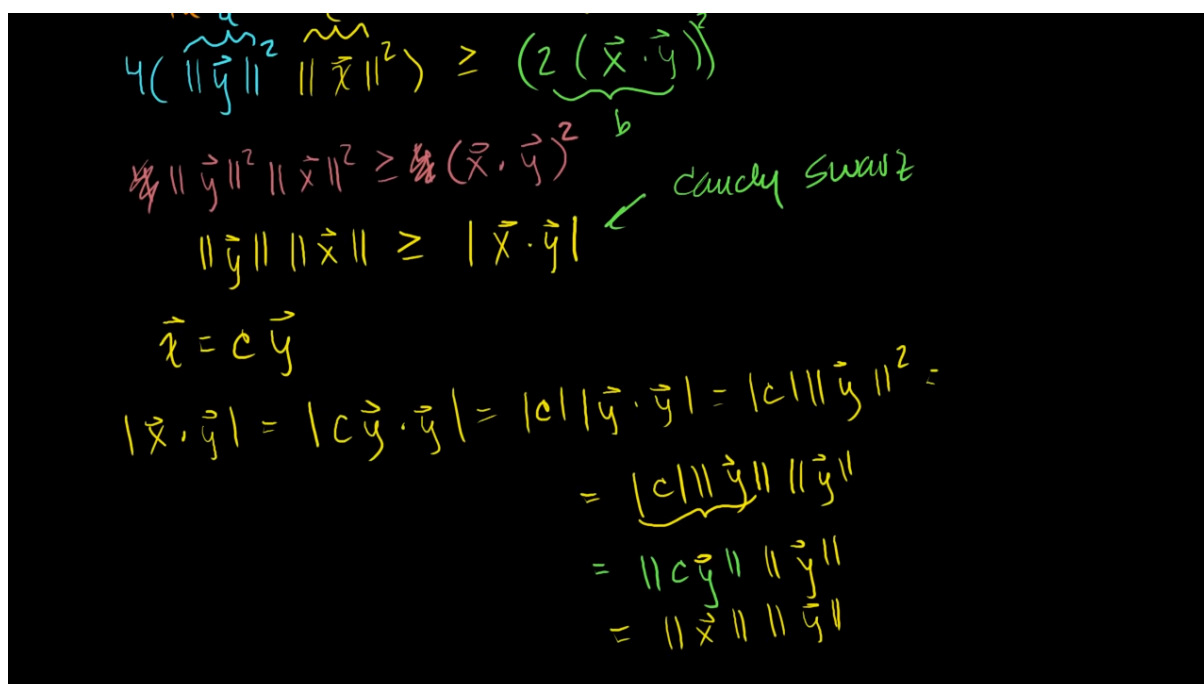 4(‖y⃗‖² ‖x⃗‖²) ≥ (2(x⃗·y⃗))²
b
‖y⃗‖² ‖x⃗‖² ≥ (x⃗·y⃗)²
cauchy swarz
‖y⃗‖ ‖x⃗‖ ≥ |x⃗·y⃗|
x⃗ = c y⃗
|x⃗·y⃗| = |c y⃗·y⃗| = |c| |y⃗·y⃗| = |c| ‖y⃗‖² =
= |c| ‖y⃗‖ ‖y⃗‖
= ‖c y⃗‖ ‖y⃗‖
= ‖x⃗‖ ‖y⃗‖